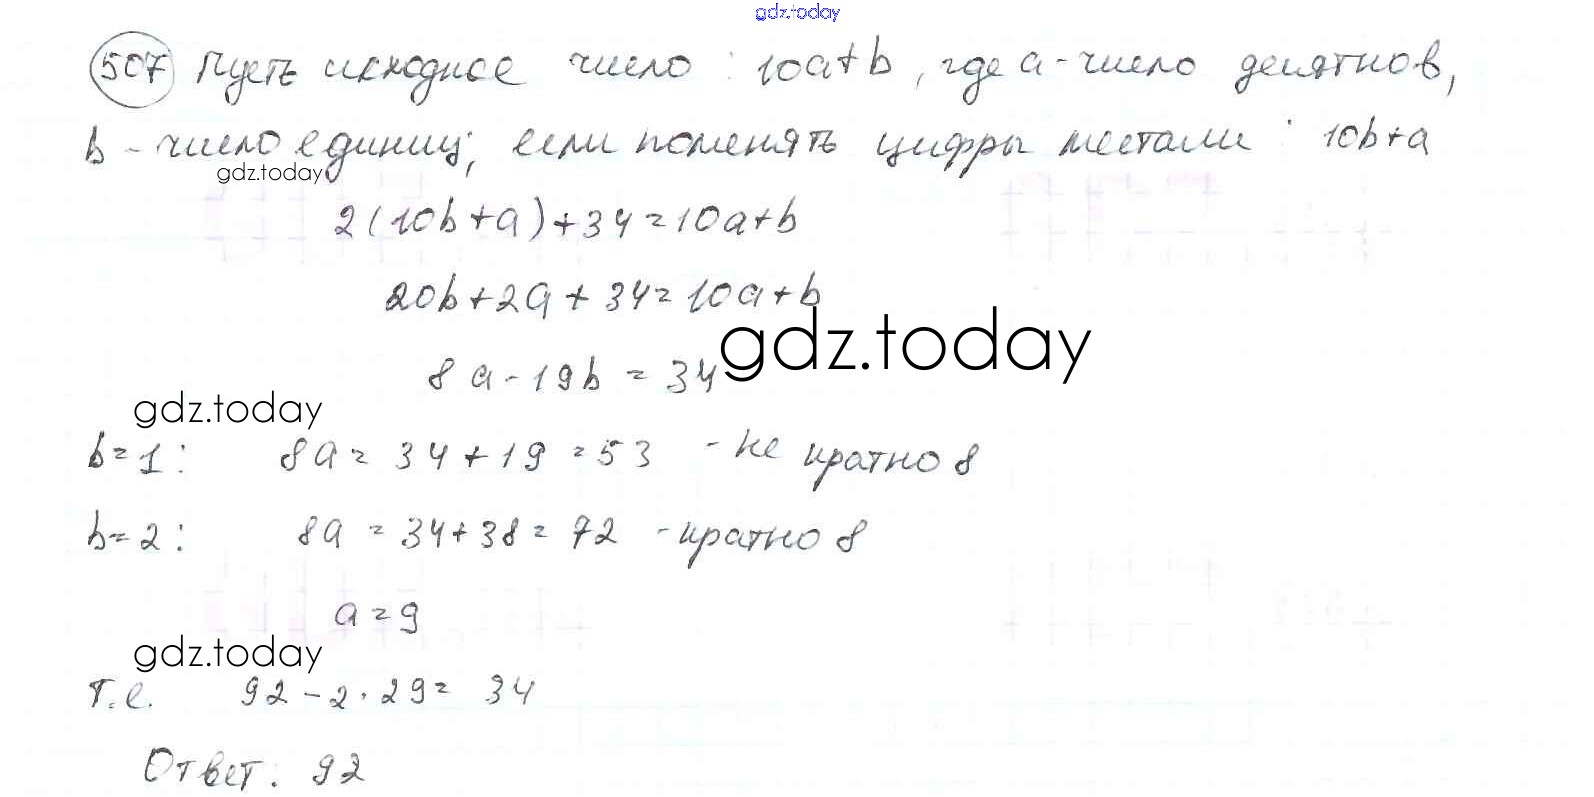 gdz.today
507 Пусть исходное число : 10a+b, где a - число десятков,
b - число единиц; если поменять цифры местами : 10b+a
gdz.today
2(10b+a)+34=10a+b
20b+2a+34=10a+b
gdz.today
8a-19b=34
gdz.today
b=1: 8a=34+19=53 - не кратно 8
b=2: 8a=34+38=72 - кратно 8
a=9
gdz.today
т.е. 92-2·29=34
Ответ: 92